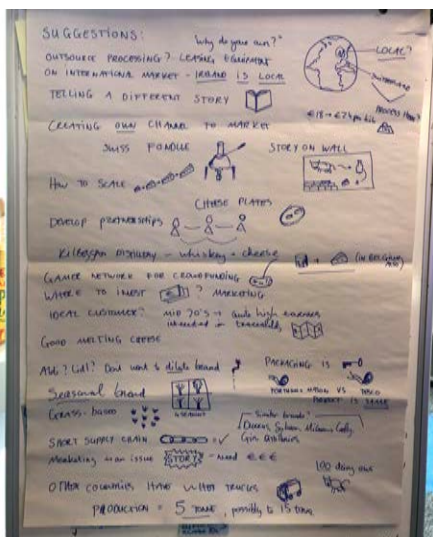 SUGGESTIONS:
"Why do your own?"
OUTSOURCE PROCESSING? LEASING EQUIPMENT
ON INTERNATIONAL MARKET - IRELAND IS LOCAL
LOCAL?
SWITZERLAND
TELLING A DIFFERENT STORY
PROCESS HERE?
€18 → €24 per kilo
CREATING OWN CHANNEL TO MARKET
SWISS FONDUE
STORY ON WALL
HOW TO SCALE
CHEESE PLATES
DEVELOP PARTNERSHIPS
KILBEGGAN DISTILLERY - whiskey + cheese
+ (IN BELGIUM ALSO)
GAMER NETWORK FOR CROWDFUNDING
WHERE TO INVEST ? MARKETING
IDEAL CUSTOMER? MID 30's → quite high earners
interested in traceability
GOOD MELTING CHEESE
Aldi? Lidl? Don't want to dilute brand
PACKAGING IS
FORTNUM + MASON VS TESCO
PRODUCT IS SAME
Seasonal brand
4 SEASONS
Grass-based
Similar brands?
SHORT SUPPLY CHAIN
Marketing is an issue STORY - need €€€
100 dairy cows
OTHER COUNTRIES HAVE WHEY TRUCKS
PRODUCTION = 5 TONNE, possibly to 15 tonne